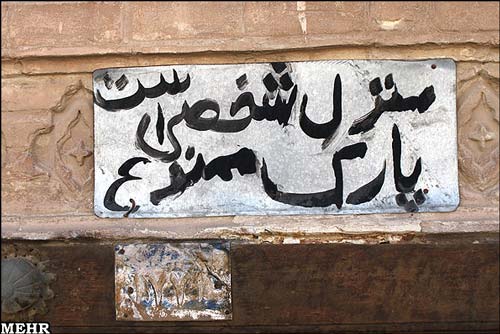 منزل شخصی است
پارک ممنوع
MEHR